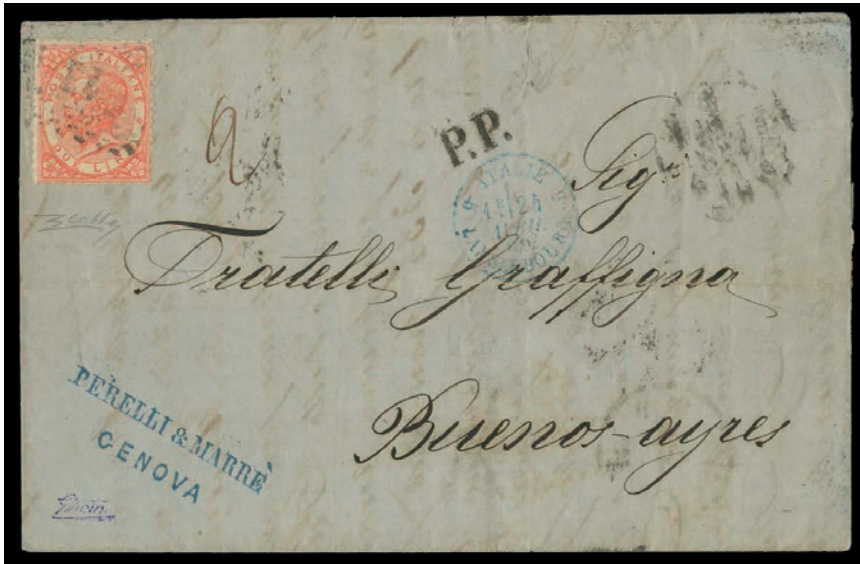 POSTE ITALIANE
DUE LIRE
2
P.P.
ITALIE
24
Sig.ri
Fratelli Graffigna
Buenos-ayres
PERELLI & MARRÈ
GENOVA